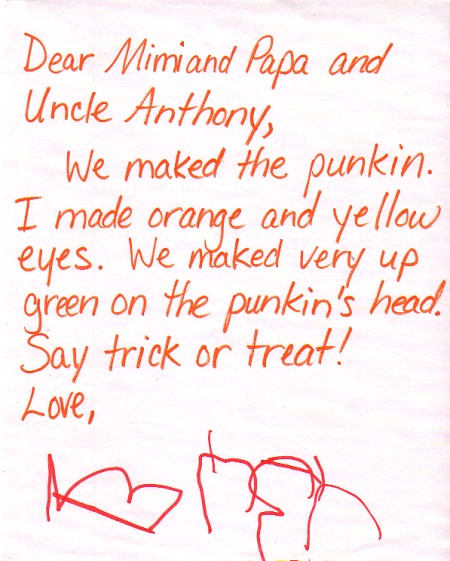 Dear Mimi and Papa and
Uncle Anthony,
We maked the punkin.
I made orange and yellow
eyes. We maked very up
green on the punkin's head.
Say trick or treat!
Love,